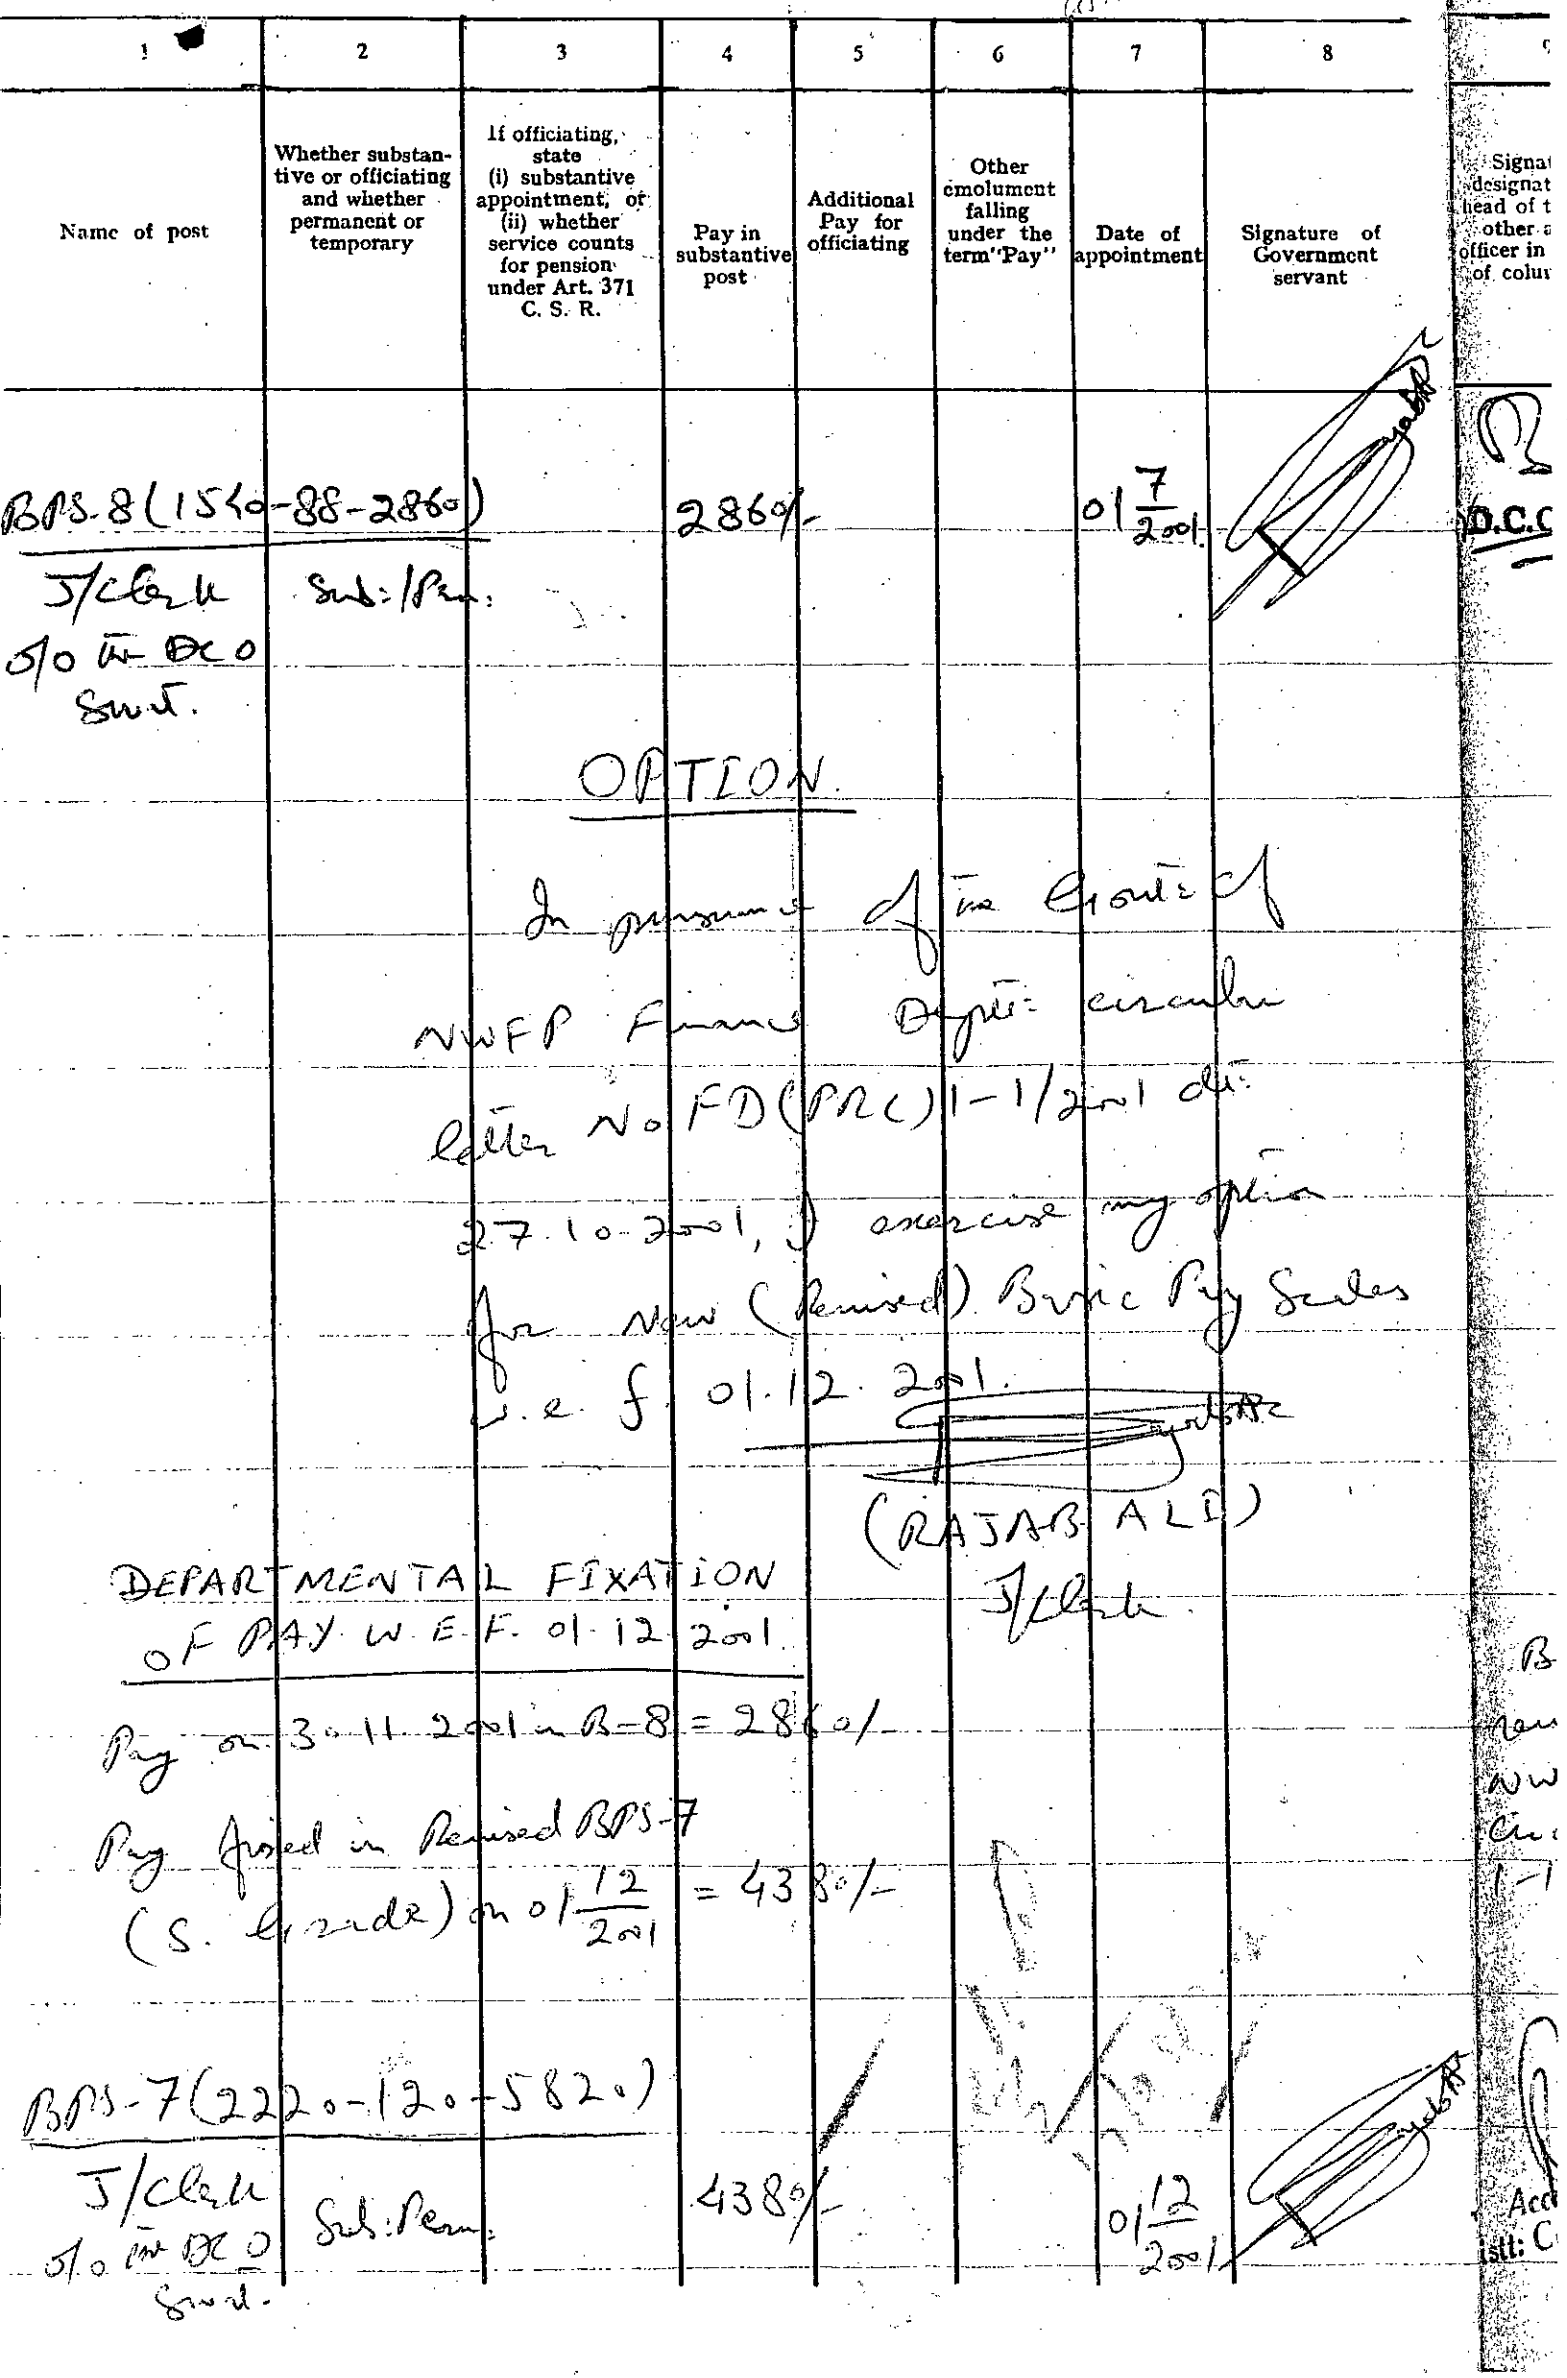 1 2 3 4 5 6 7 8
Name of post
Whether substan-
tive or officiating
and whether
permanent or
temporary
If officiating,
state
(i) substantive
appointment, or
(ii) whether
service counts
for pension
under Art. 371
C. S. R.
Pay in
substantive
post
Additional
Pay for
officiating
Other
emolument
falling
under the
term "Pay"
Date of
appointment
Signature of
Government
servant
Signat
designat
head of t
other a
officer in
of colu
BPS-8 (1540-88-2860) 2860/- 01 7/2001
D.C.O
J/Clerk Sub:/Per:
O/O the DCO
Swat.
OPTION.
In pursuance of the Govt: of
NWFP Finance Deptt: circular
letter No FD(PRC)1-1/2001 dt:
27.10.2001, I exercise my option
for New (Revised) Basic Pay Scales
w.e.f. 01.12.2001.
(RAJAB ALI)
J/Clerk.
DEPARTMENTAL FIXATION
OF PAY. W.E.F. 01.12.2001.
Pay on 30.11.2001 in B-8 = 2860/-
Pay fixed in Revised BPS-7
(S. Grade) on 01 12/2001 = 4380/-
BPS-7 (2220-120-5820)
J/Clerk Sub:Perm: 4380/- 01 12/2001
O/O the DCO
Swat.
B
NW
1-1
Acc
istt: C